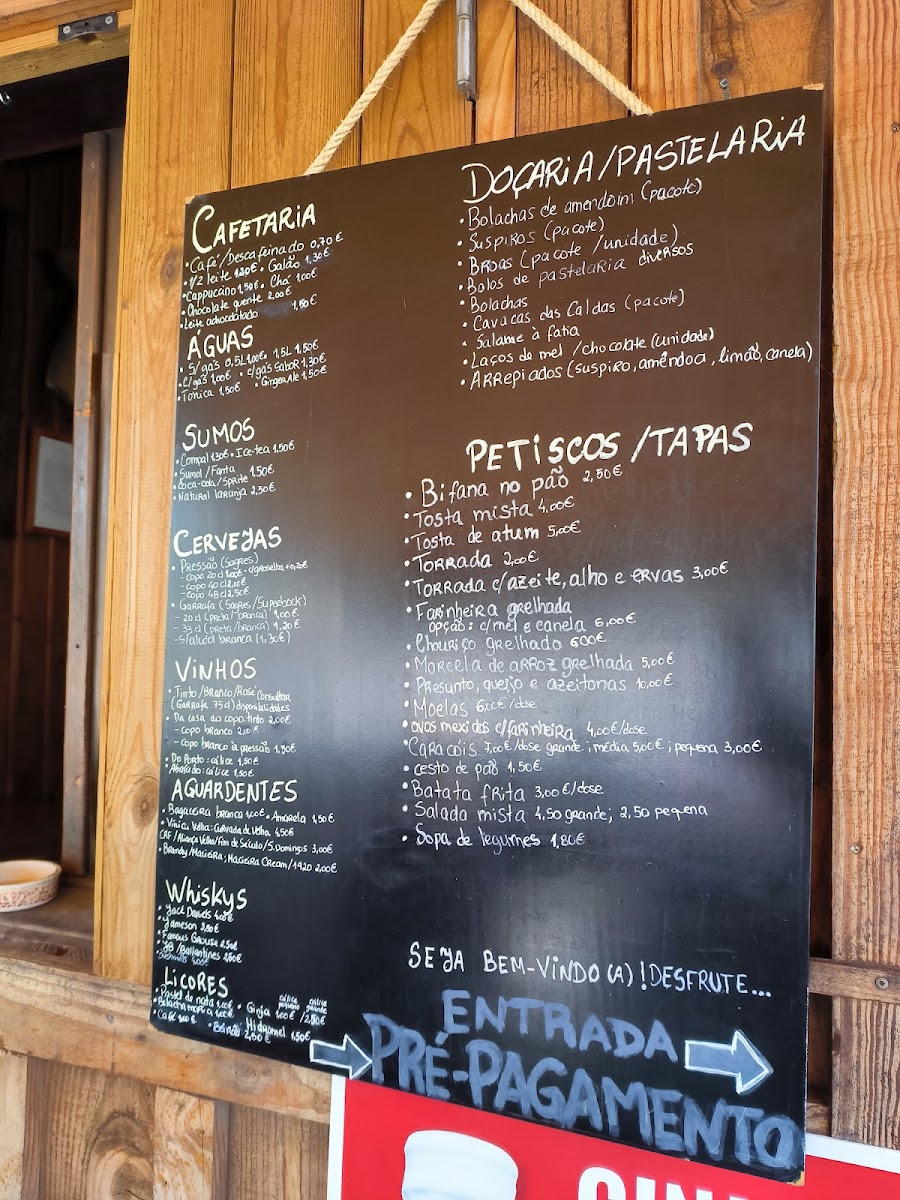 CAFETARIA
• Café/Descafeinado 0,70€
• 1/2 leite 1,20€ • Galão 1,30€
• Cappucino 1,50€ • Chá 1,00€
• Chocolate quente 2,00€
• Leite achocolatado 1,50€
ÁGUAS
• S/gás 0,5L 1,00€, 1,5L 1,50€
• C/gás 1,00€ • c/gás sabor 1,30€
• Tónica 1,50€ • Gingerale 1,50€
SUMOS
• Compal 1,30€ • Ice-tea 1,50€
• Sumol/Fanta
• Coca-cola/Sprite 1,50€
• Natural laranja 2,50€
CERVEJAS
• Pressão (Sagres)
- Copo 20cl 1,00€ - c/groselha +0,20€
- Copo 40cl 2,00€
- Copo 48cl 2,50€
• Garrafa (Sagres/Superbock)
- 20cl (preta/branca) 1,00€
- 33cl (preta/branca) 1,20€
- S/alcool branca (1,30€)
VINHOS
• Tinto/Branco/Rosé Consultar
(Garrafa 75cl) disponibilidades
• Da casa ao copo tinto 2,00€
- copo branco 2,00€
- copo branco à pressão 1,90€
• Do Porto: cálice 1,50€
• Abafado: cálice 1,50€
AGUARDENTES
• Bagaceira branca 1,00€ • Amarela 1,50€
• Vínica Velha: Carvada de Velha 4,50€
CRF/Aliança Velha/Fim de Século/S. Domingos 3,00€
• Brandy/Macieira; Macieira Cream/1920 2,00€
Whiskys
• Jack Daniels 4,00€
• Jameson 3,50€
• Famous Grouse 2,50€
• JB/Ballantines 2,50€
Bushmills 4,00€
LICORES
• Pastel de nata 1,00€ • Ginja cálice pequeno 1,00€ / cálice grande 2,50€
• Bolacha maria 1,00€
• Café 1,00€ • 2,50€ Hidromel 1,50€
DOÇARIA/PASTELARIA
• Bolachas de amendoim (pacote)
• Suspiros (pacote)
• Broas (pacote/unidade)
• Bolos de pastelaria diversos
• Bolachas
• Cavacas das Caldas (pacote)
• Salame à fatia
• Laços de mel/chocolate (unidade)
• Arrepiados (suspiro, amêndoa, limão, canela)
PETISCOS/TAPAS
• Bifana no pão 2,50€
• Tosta mista 4,00€
• Tosta de atum 5,00€
• Torrada 2,00€
• Torrada c/azeite, alho e ervas 3,00€
• Farinheira grelhada
opção: c/mel e canela 6,00€
• Chouriço grelhado 6,00€
• Morcela de arroz grelhada 5,00€
• Presunto, queijo e azeitonas 10,00€
• Moelas 6,00€/dose
• ovos mexidos c/farinheira 4,00€/dose
• Caracóis 7,00€/dose grande; média 5,00€; pequena 3,00€
• cesto de pão 1,50€
• Batata frita 3,00€/dose
• Salada mista 4,50 grande; 2,50 pequena
• Sopa de legumes 1,80€
SEJA BEM-VINDO(A)! DESFRUTE...
ENTRADA
PRÉ-PAGAMENTO